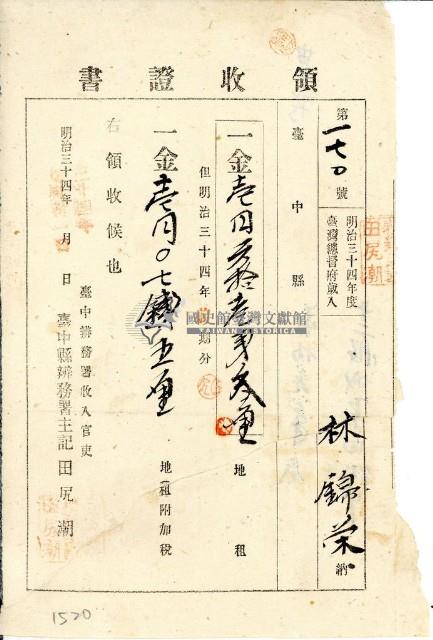 領收證書
第一七〇號
明治三十四年度
臺灣總督府歲入
林錦榮 納
臺中縣
一金壱円 地租
但明治三十四年 期分
一金壱円〇七錢五厘 地租附加稅
右領收候也
明治三十四年 月 日
臺中辨務署收入官吏
臺中縣辨務署主記 田尻潮
國史館臺灣文獻館
TAIWAN HISTORICA
田尻潮
1520